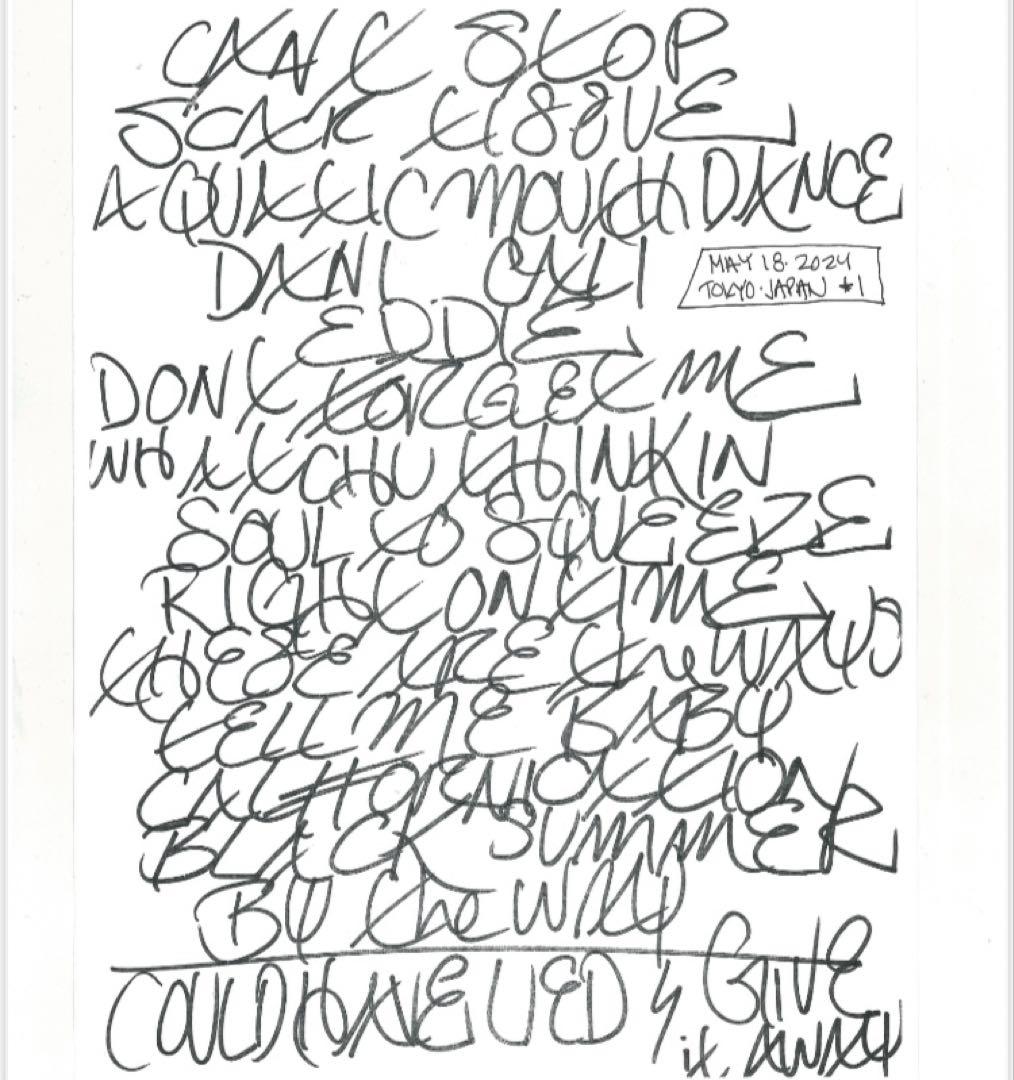 CAN'T STOP
SCAR TISSUE
AQUATIC MOUTH DANCE
DANI CALI
MAY 18·2024
TOKYO·JAPAN #1
EDDIE
DONT FORGET ME
WHATCHU THINKIN
SOUL TO SQUEEZE
RIGHT ON TIME
THESE ARE the WAYS
TELL ME BABY
CALIFORNICATION
BLACK SUMMER
BY the WAY
COULD HAVE LIED & GIVE
it AWAY